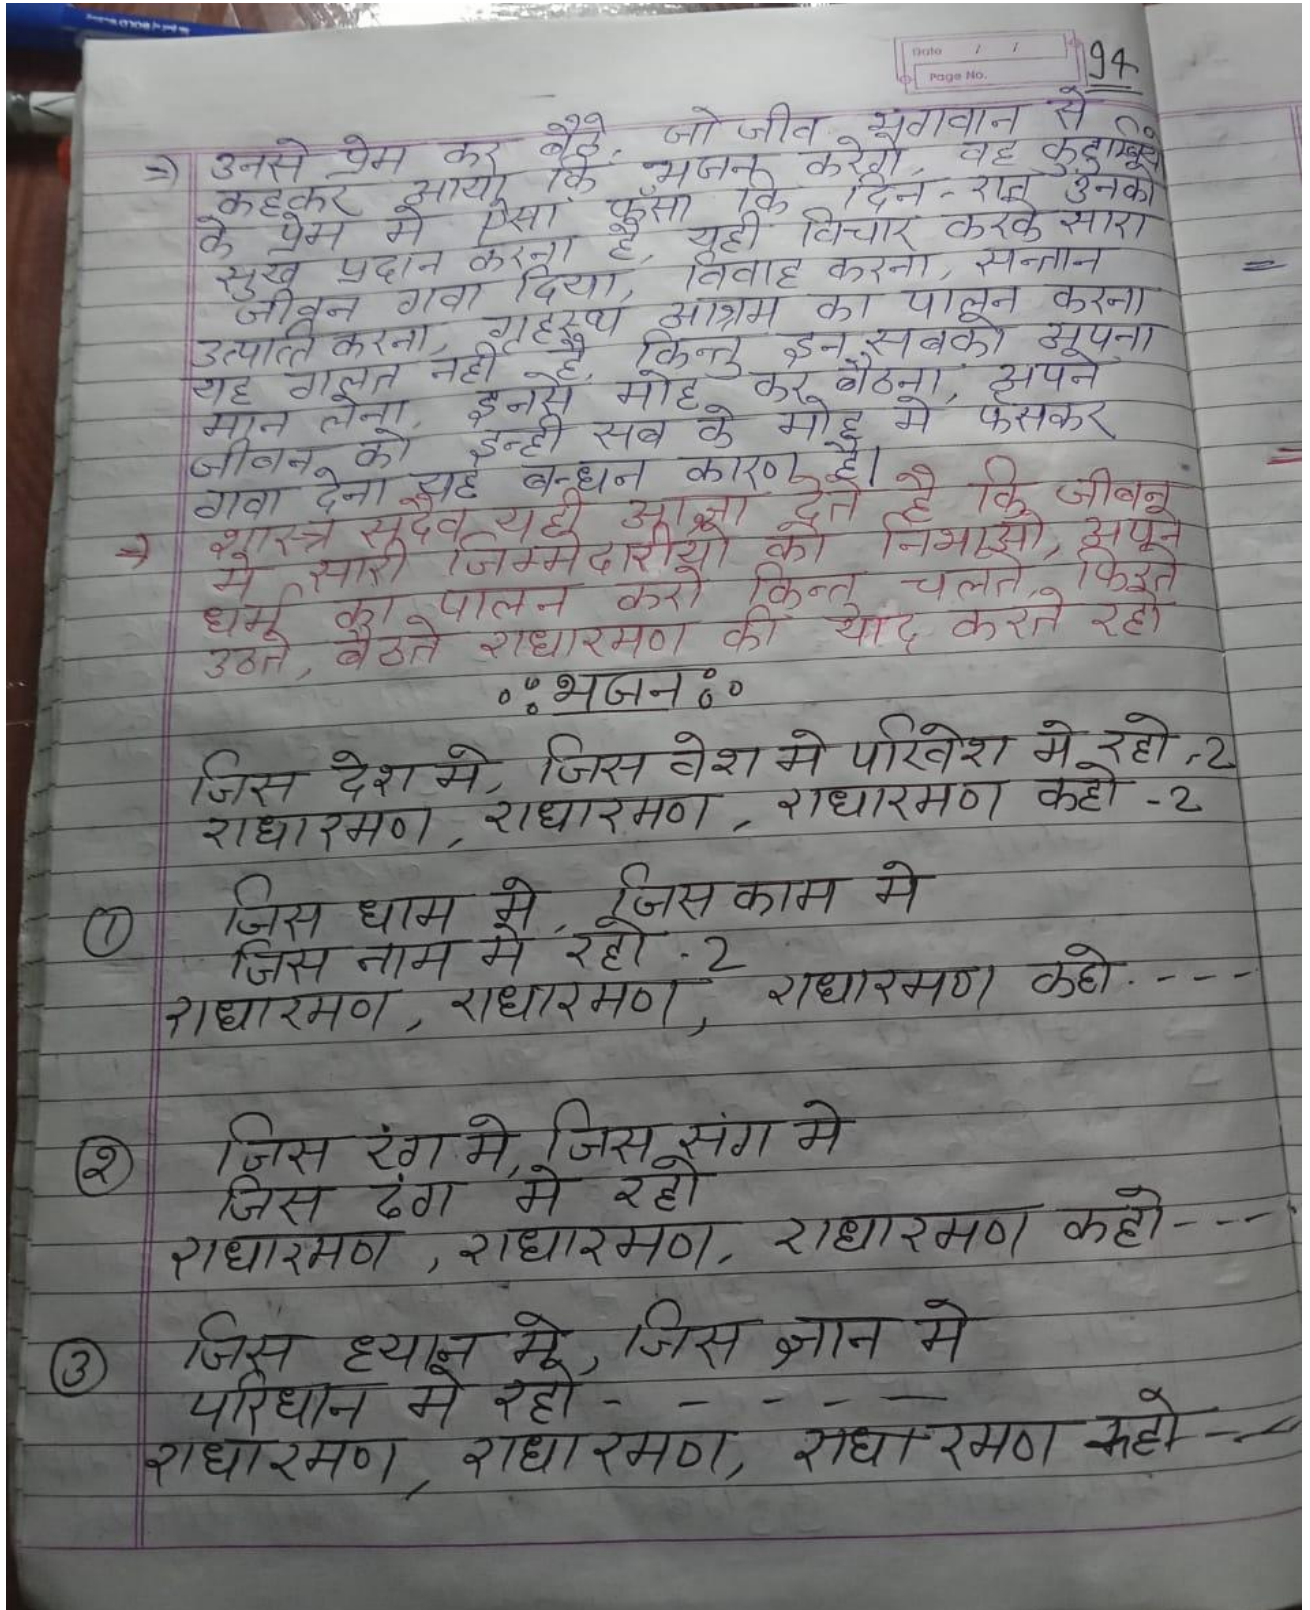 Date / /
Page No.
94
⇒ उनसे प्रेम कर बैठे, जो जीव भगवान से
कहकर आया कि भजन करेगे, वह
के प्रेम मे ऐसा फँसा कि दिन-रात उनको
सुख प्रदान करना है, यही विचार करके सारा
जीवन गवा दिया, विवाह करना, सन्तान
उत्पत्ति करना, गृहस्थ आश्रम का पालन करना
यह गलत नही है, किन्तु इन सबको अपना
मान लेना, इनसे मोह कर बैठना, अपने
जीवन को इन्ही सब के मोह मे फसकर
गवा देना यह बन्धन कारण है।
→ शास्त्र सदैव यही आज्ञा देते है कि जीवन
मे सारी जिम्मेदारीयो को निभाओ, अपने
धर्म का पालन करो किन्तु चलते, फिरते
उठते, बैठते राधारमण की याद करते रहो
भजन
जिस देश मे, जिस वेश मे परिवेश मे रहो -2
राधारमण, राधारमण, राधारमण कहो -2
① जिस धाम मे, जिस काम मे
जिस नाम मे रहो -2
राधारमण, राधारमण, राधारमण कहो ----
② जिस रंग मे, जिस संग मे
जिस ढंग मे रहो
राधारमण, राधारमण, राधारमण कहो ----
③ जिस ध्यान मे, जिस ज्ञान मे
परिधान मे रहो - - - - -
राधारमण, राधारमण, राधारमण कहो ---